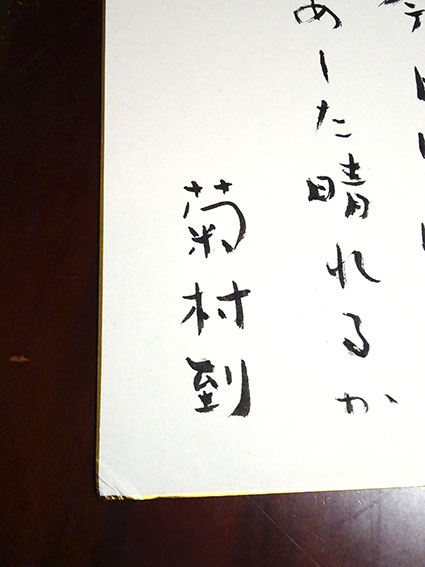 あした晴れるか
菊村到